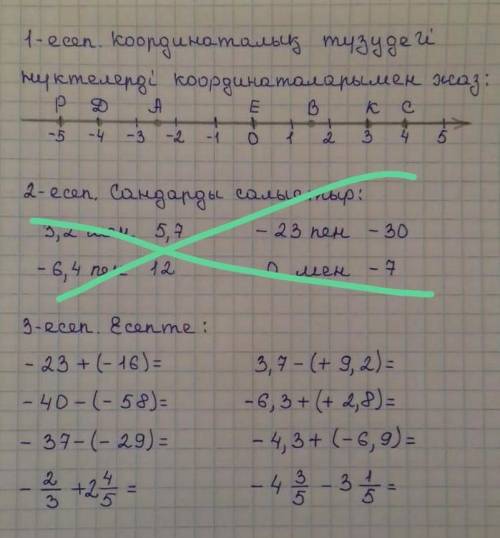 1-есеп. координаталық түзудегі
нүктелерді координаталарымен жаз:
P D A E B K C
-5 -4 -3 -2 -1 0 1 2 3 4 5
2-есеп. Сандарды салыстыр:
5,7 -23 пен -30
-6,4 пен 12 0 мен -7
3-есеп. Есепте:
-23+(-16)= 3,7-(+9,2)=
-40-(-58)= -6,3+(+2,8)=
-37-(-29)= -4,3+(-6,9)=
-2/3+2 4/5= -4 3/5-3 1/5=